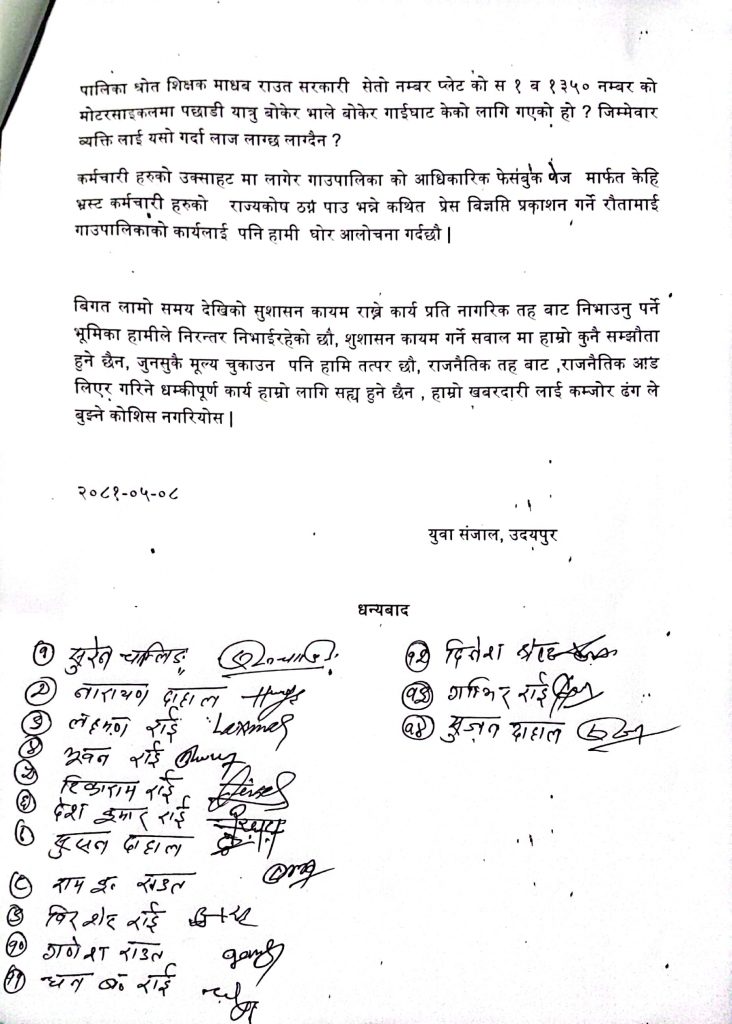 पालिका श्रोत शिक्षक माधब राउत सरकारी सेतो नम्बर प्लेट को स १ व १३५० नम्बर को
मोटरसाइकलमा पछाडी यात्रु बोकेर भाले बोकेर गाईघाट केको लागि गएको हो ? जिम्मेवार
ब्यक्ति लाई यसो गर्दा लाज लाग्छ लाग्दैन ?
कर्मचारी हरुको उक्साहट मा लागेर गाउपालिका को आधिकारिक फेसबुक पेज मार्फत केहि
भ्रस्ट कर्मचारी हरुको राज्यकोप ठग्न पाउ भन्ने कथित प्रेस बिज्ञप्ति प्रकाशन गर्ने रौतामाई
गाउपालिकाको कार्यलाई पनि हामी घोर आलोचना गर्दछौ |
बिगत लामो समय देखिको सुशासन कायम राख्ने कार्य प्रति नागरिक तह बाट निभाउनु पर्ने
भूमिका हामीले निरन्तर निभाईरहेको छौ, शुशासन कायम गर्ने सवाल मा हाम्रो कुनै सम्झौता
हुने छैन, जुनसुकै मूल्य चुकाउन पनि हामि तत्पर छौ, राजनैतिक तह बाट ,राजनैतिक आड
लिएर गरिने धम्कीपूर्ण कार्य हाम्रो लागि सह्य हुने छैन , हाम्रो खबरदारी लाई कम्जोर ढंग ले
बुझ्ने कोशिस नगरियोस |
२०८१-०५-०८
युवा संजाल, उदयपुर
धन्यबाद
१ सुरेन चाम्लिङ
२ नारायण दाहाल
३ लक्ष्मण राई Laxman
४ भुवन राई
५ टिकाराम राई
६ देश कुमार राई
७ सुजन दाहाल
८ राम कु राउत
९ विर शेर राई
१० गणेश राउत
११ धन ब॰ राई
१२ दिनेश
१३ गम्भिर राई
१४ सुजन दाहाल